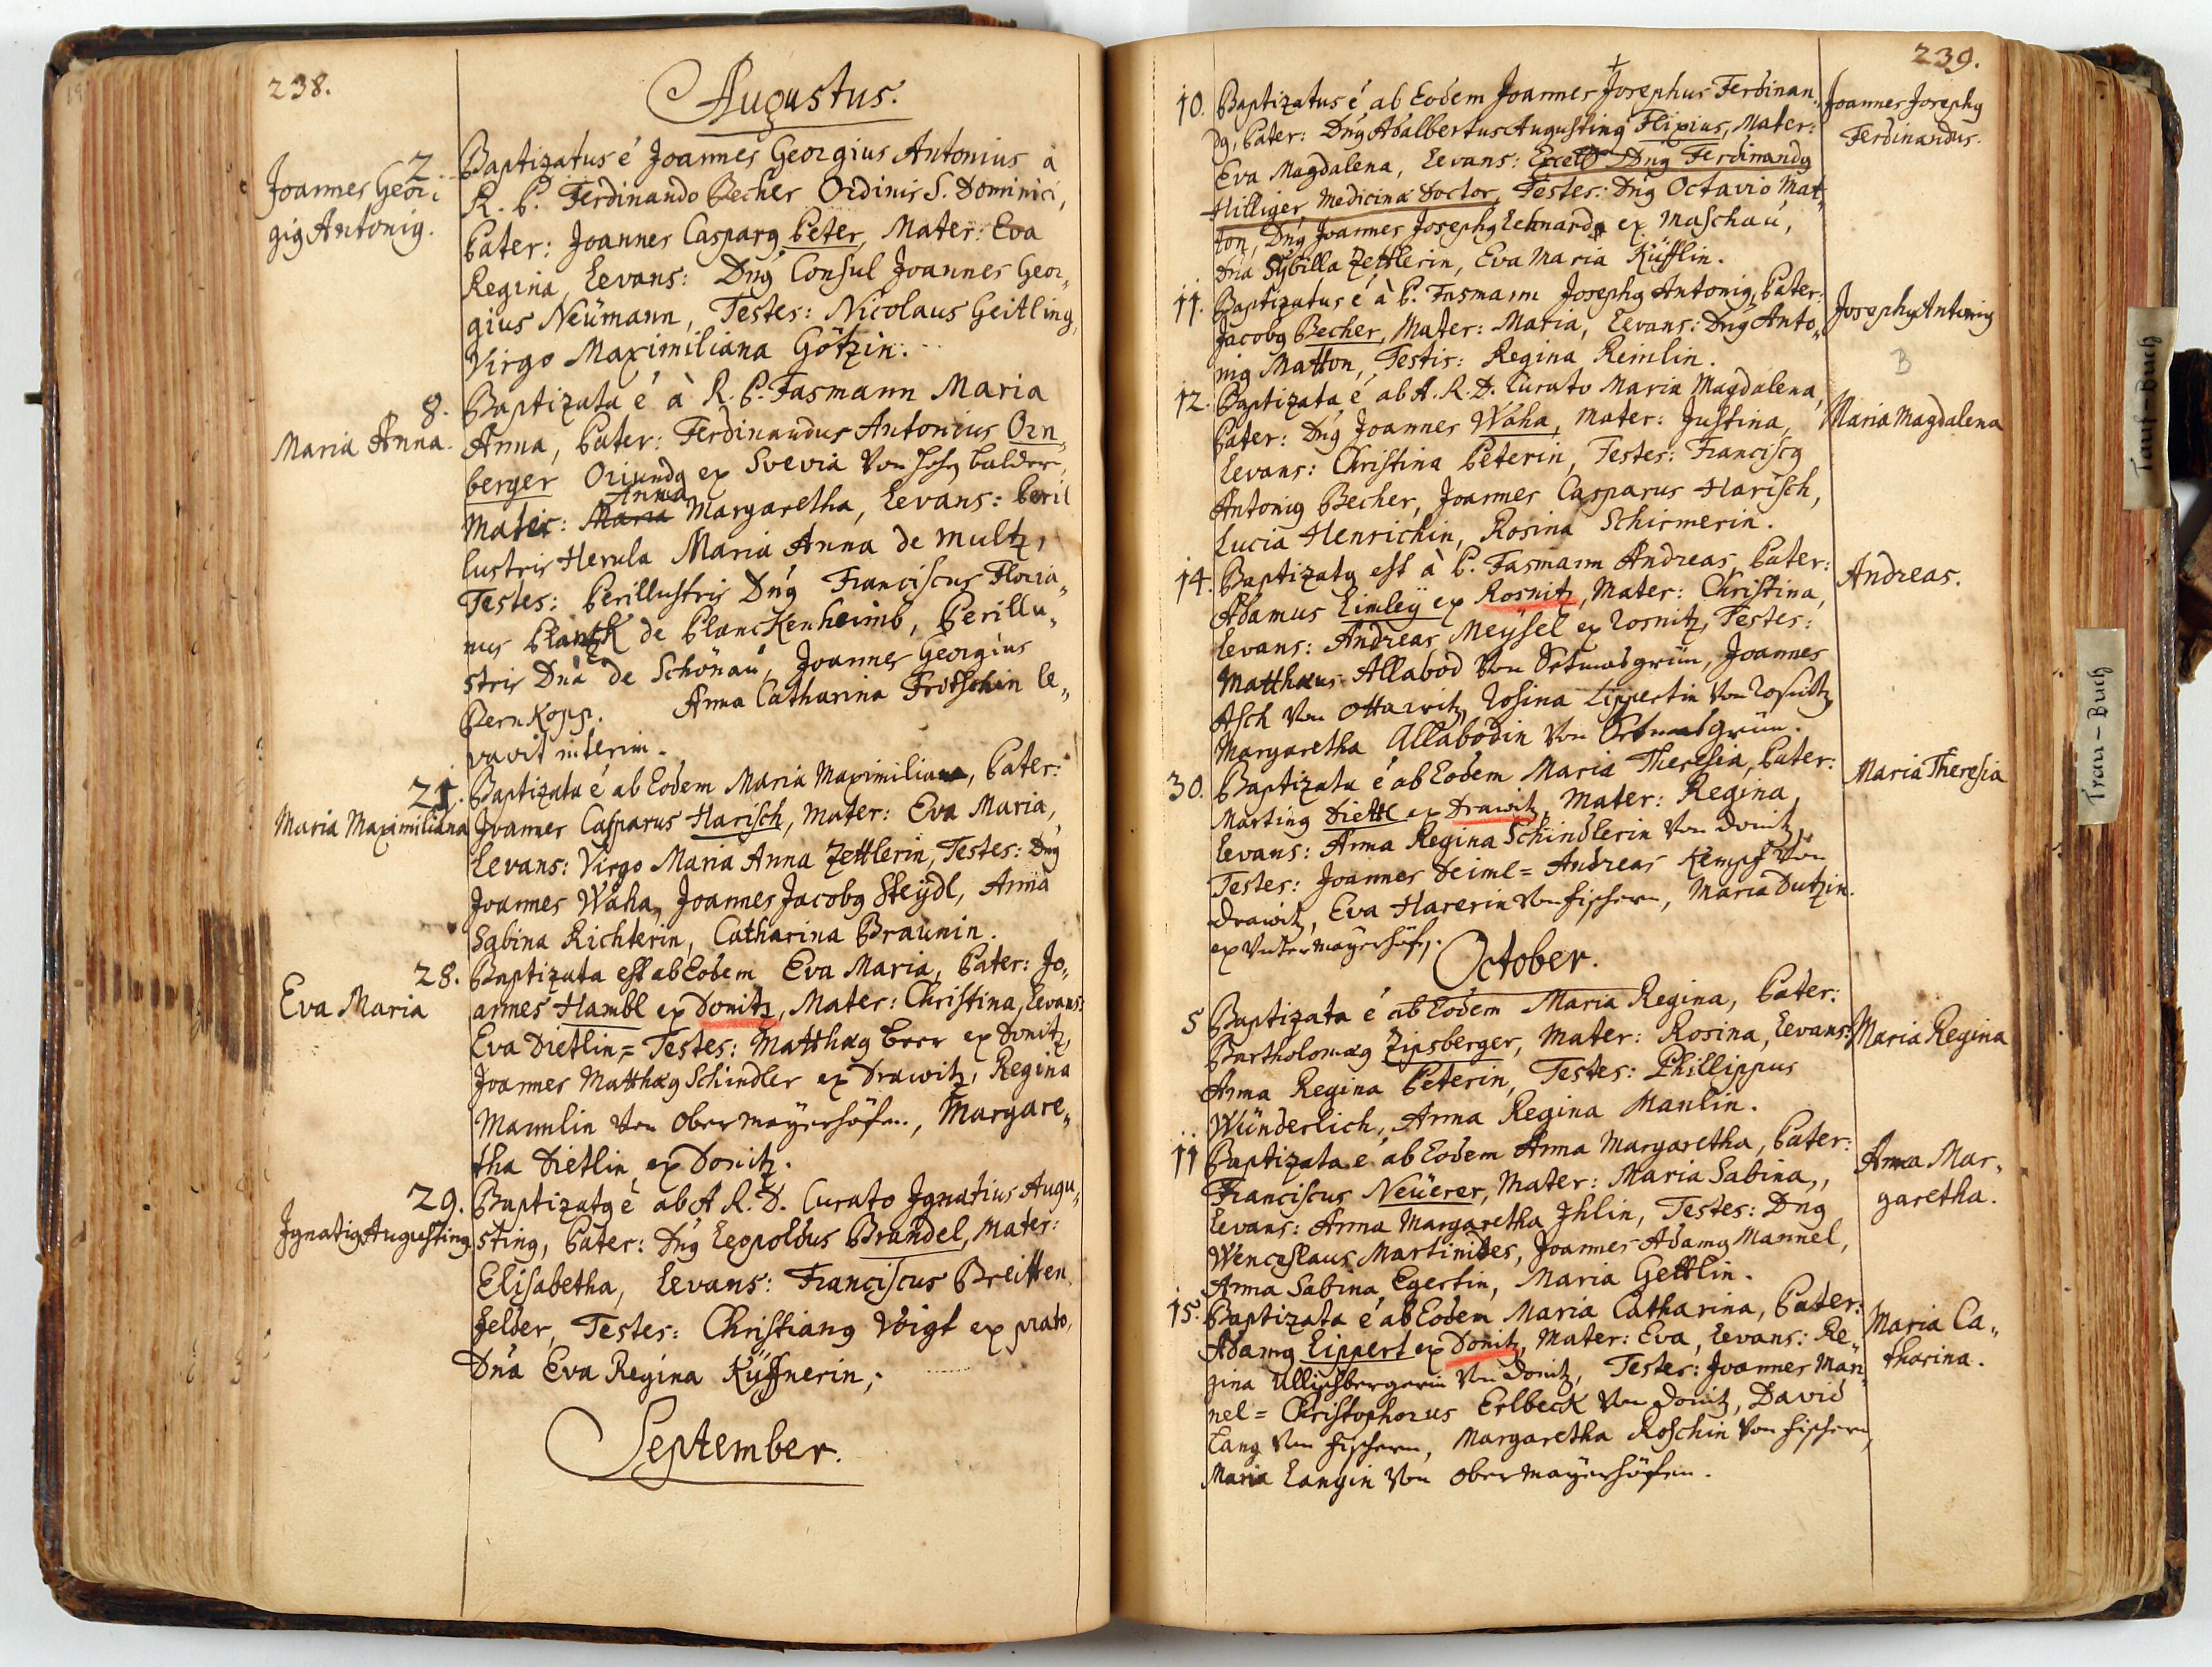 238.
Augustus.
Joannes Geor:
gig Antonig.
2. Baptizatus é Joannes Georgius Antonius à
R. P. Ferdinando Becher Ordinis S. Dominici,
Pater: Joannes Casparg Peter, Mater: Eva
Regina, Levans: Dng Consul Joannes Geor„
gius Neümann, Testes: Nicolaus Geitling,
Virgo Maximiliana Götzin.
Maria Anna.
8. Baptizata é à R. P. Fasmann Maria
Anna, Pater: Ferdinandus Antonius Orn„
berger Oriundg ex Svevia von Hohen Balder,
Anna
Mater: Maria Margaretha, Levans: Peril
lustris Herula Maria Anna de Multz,
Testes: Perillustris Dng Franciscus Floria„
nus Planck de Planckenheimb, Perillu„
stris Dna de Schönau, Joannes Georgius
Bernkopp. Anna Catharina Fritschin le„
vavit interim.
Maria Maximiliana
21. Baptizata é ab Eodem Maria Maximiliana, Pater:
Joannes Casparus Harisch, Mater: Eva Maria,
Levans: Virgo Maria Anna Zettlerin, Testes: Dng
Joannes Waha, Joannes Jacobg Steÿdl, Anna
Sabina Richterin, Catharina Braunin.
Eva Maria
28. Baptizata est ab Eodem Eva Maria, Pater: Jo„
annes Hambl ex Donitz, Mater: Christina, Levans:
Eva Dietlin = Testes: Matthæg Beer ex Donitz,
Joannes Matthæg Schindler ex Drawitz, Regina
Mannlin von Obermayerhöfen, Margare„
tha Dietlin ex Donitz.
Ignatig Augusting
29. Baptizatg é ab A. R. D. Curato Ignatius Augu„
sting, Pater: Dng Leopoldus Brandel, Mater:
Elisabetha, Levans: Franciscus Breitten
felder, Testes: Christiang Voigt ex prato,
Dna Eva Regina Küffnerin,
September.
239.
10. Baptizatus é ab Eodem Joannes Josephus Ferdinan„
dg, Pater: Dng Adalbertus Augusting Flixius, Mater:
Eva Magdalena, Levans: Excell Dng Ferdinandg
Hilliger Medicinæ Doctor, Testes: Dng Octavio Mat„
ton, Dng Joannes Josephg Lehnard ex Maschau,
Dna Sybilla Zettlerin, Eva Maria Küfflin.
Joannes Josephg
Ferdinandus.
11. Baptizatus é à P. Fasmann Josephg Antonig, Pater:
Jacobg Becher, Mater: Maria, Levans: Dng Anto„
nig Matton, Testis: Regina Reimlin.
Josephg Antonig
B
12. Baptizata é ab A. R. D. Curato Maria Magdalena,
Pater: Dng Joannes Waha, Mater: Justina,
Levans: Christina Peterin, Testes: Franciscg
Antonig Becher, Joannes Casparus Harisch,
Lucia Henrichin, Rosina Schirmerin.
Maria Magdalena
14. Baptizatg est à P. Fasmann Andreas, Pater:
Adamus Limleÿ ex Rosnitz, Mater: Christina,
Levans: Andreas Meÿsel ex Rosnitz, Testes:
Matthæus Allabod von Ortmasgrün, Joannes
Asch von Ottawitz, Rosina Lippertin von Rosnitz,
Margaretha Allabodin von Ortmasgrün.
Andreas.
30. Baptizata é ab Eodem Maria Theresia, Pater:
Marting Dietl ex Drawitz, Mater: Regina,
Levans: Anna Regina Schindlerin von Donitz,
Testes: Joannes Deiml = Andreas Kempf von
Drawitz, Eva Harerin von Fischern, Maria Dutzin
ex Untermayerhöfen.
Maria Theresia
October.
5 Baptizata é ab Eodem Maria Regina, Pater:
Bartholomæg Zipsberger, Mater: Rosina, Levans:
Anna Regina Peterin, Testes: Phillippus
Wünderlich, Anna Regina Manlin.
Maria Regina
11 Baptizata é ab Eodem Anna Margaretha, Pater:
Franciscus Neüerer, Mater: Maria Sabina,
Levans: Anna Margaretha Ihlin, Testes: Dng
Wenceslaus Martinides, Joannes Adamg Mannel,
Anna Sabina Egertin, Maria Gettlin.
Anna Mar„
garetha.
15. Baptizata é ab Eodem Maria Catharina, Pater:
Adamg Lippert ex Donitz, Mater: Eva, Levans: Re„
gina Ullischbergerin von Donitz, Testes: Joannes Man„
nel = Christophorus Erlbeck von Donitz, David
Lang von Fischern, Margaretha Roschin von Fischern,
Maria Langin von Obermayerhöfen.
Maria Ca„
tharina.
Tauf-Buch
Trau-Buch